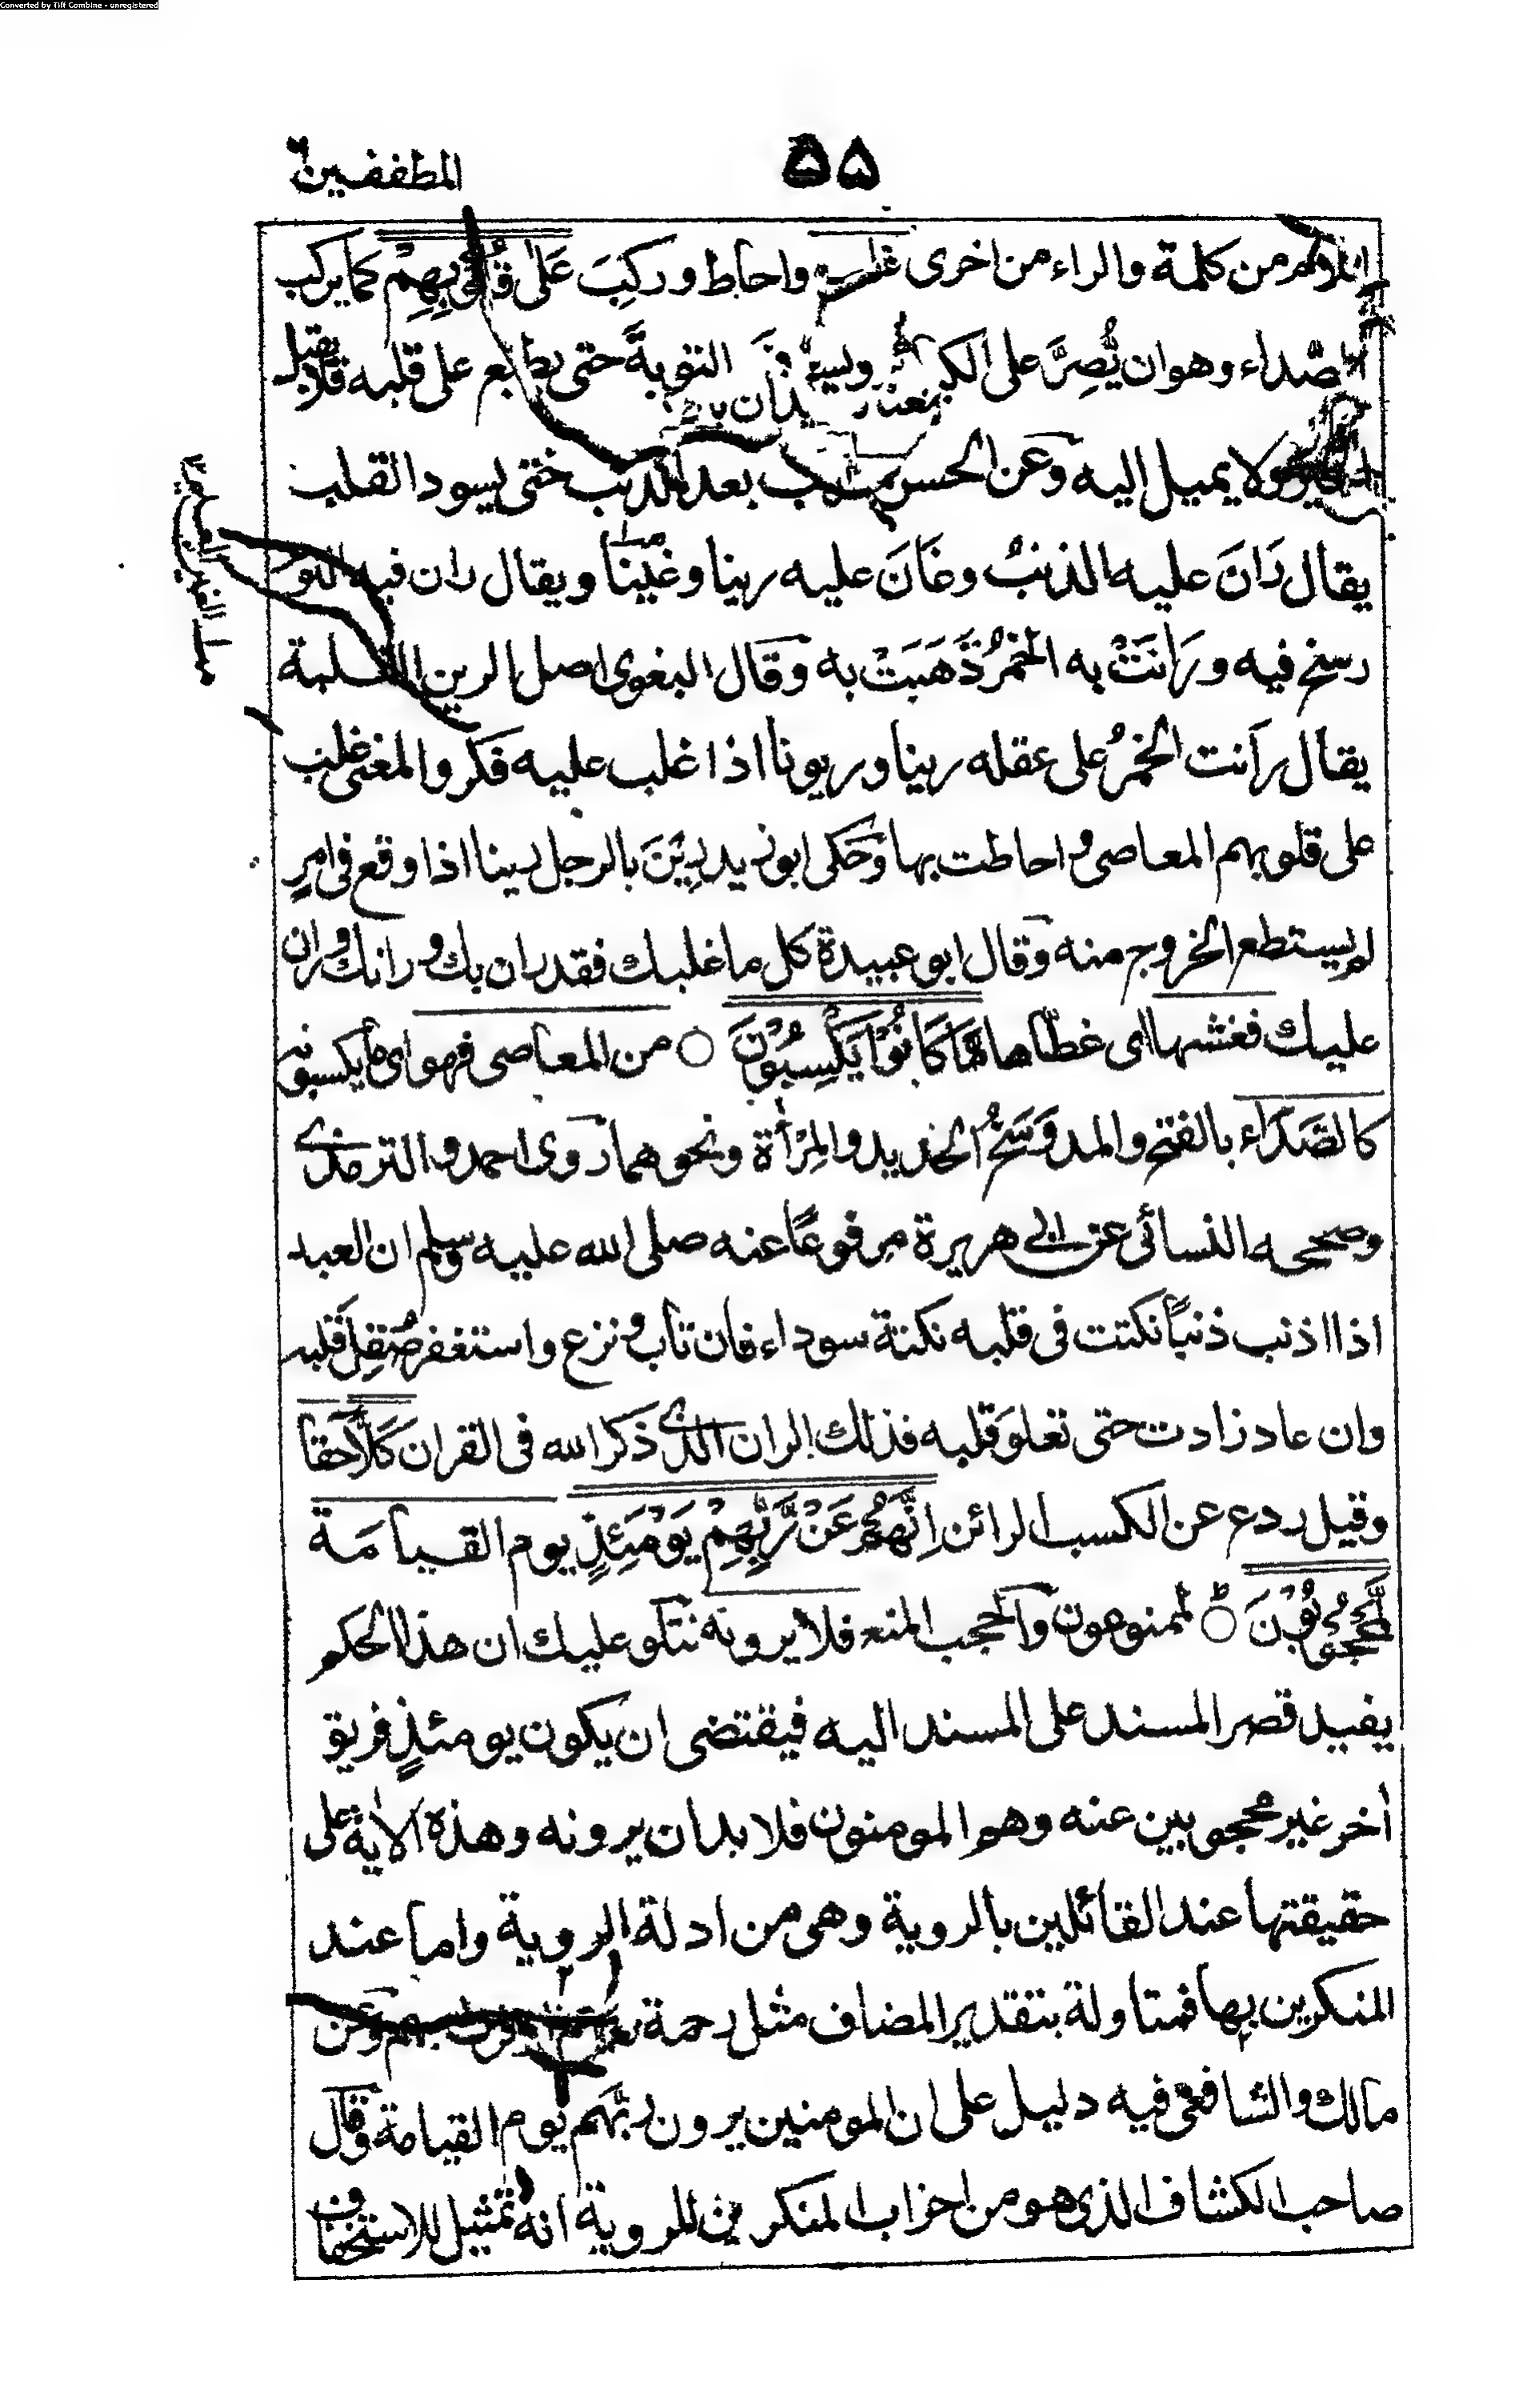 Converted by Tiff Combine - unregistered
۵۵
المطففين
من كلمة والراء من اخرى غلب واحاط وركِبَ عَلىٰ قُلُوْبِهِمْ كما يركب
الصّداء وهو ان يُّصِرَّ على الكبائر التوبةَ حتى يطبع على قلبه فلا يقبل
ولا يميل اليه وعن الحسن بعد الذنب حتى يسود القلب
يقال رَانَ عليه الذنبُ وغَانَ عليه رينا وغَيْنًا ويقال ران فيه النوم
رسخ فيه ورَانَتْ به الخمرُ ذَهَبَتْ به وقال البغوى اصل الرين الغلبة
يقال رَانت الخمرُ على عقله رينا وريونا اذا غلب عليه فكر والمعنى غلب
على قلوبهم المعاصى واحاطت بها وحكى ابو زيد رِيْنَ بالرجل رينا اذا وقع فى امرٍ
لم يستطع الخروج منه وقال ابو عبيدة كل ما غلبك فقد ران بك ورانك وران
عليك فغشيها اى غطّاها مَّا كَانُوْا يَكْسِبُوْنَ ○ من المعاصى فهو اى ما يكسبونه
كالصَّدَاء بالفتح والمد وَسَخُ الحديد والمِرْأة ونحوهما روى احمد والترمذى
وصححه النسائى عن ابى هريرة مرفوعًا عنه صلى الله عليه وسلم ان العبد
اذا اذنب ذنبًا نكتت فى قلبه نكتة سوداء فان تاب ونزع واستغفر صُقِلَ قلبه
وان عاد زادت حتى تعلو قلبه فذلك الران الذى ذكر الله فى القران كَلَّا حقا
وقيل ردع عن الكسب الرائن اِنَّهُمْ عَنْ رَّبِّهِمْ يَوْمَئِذٍ يوم القيامة
لَّمَحْجُوْبُوْنَ ○ لممنوعون والحجب المنع فلا يرونه نتلو عليك ان هذا الحكم
يفيد قصر المسند على المسند اليه فيقتضى ان يكون يومئذٍ فريق
اخر غير محجوبين عنه وهم المومنون فلا بد ان يرونه وهذه الاية على
حقيقتها عند القائلين بالروية وهى من ادلة الروية واما عند
المنكرين بها فمتاولة بتقدير المضاف مثل رحمة ربهم وعن
مالك والشافعى فيه دليل على ان المومنين يرون ربّهم يوم القيامة وقال
صاحب الكشاف الذى هو من احزاب المنكرين للروية انه تمثيل للاستخفاف